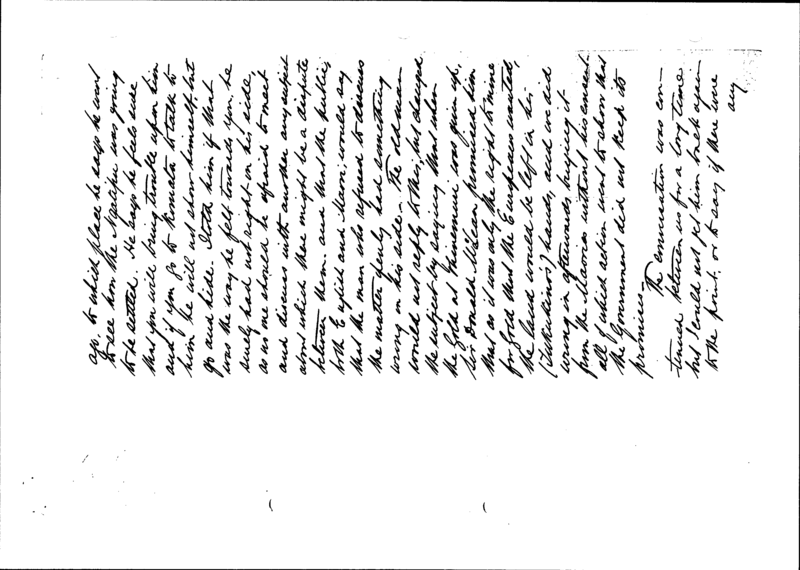 ago. to which place he says he went
to see how the Ngatipu was going
to be settled. He says he feels sure
that you will bring trouble upon him
and if you go to Komata to talk to
him he will not show himself but
go and hide. I told him if that
was the way he felt towards you, he
surely had not right on his side,
as no one should be afraid to meet
and discuss with another any subject
about which there might be a dispute
between them and that the public,
both English and Maori, would say
that the man who refused to discuss
the matter openly had something
wrong on his side. The old man
would not reply to this, but changed
the subject by saying that when
the Gold at was given up,
Sir Donald McLean promised him
that as it was only the right to mine
for Gold that the Europeans wanted,
the land would be left in his
(Tukukino's) hands, and we did
wrong in afterwards buying it
from the Maories without his consent
all of which action went to show that
the Government did not keep its
promises.
The conversation was con-
tinued between us for a long time
but I could not get him back again
to the point, or to say if there were
any